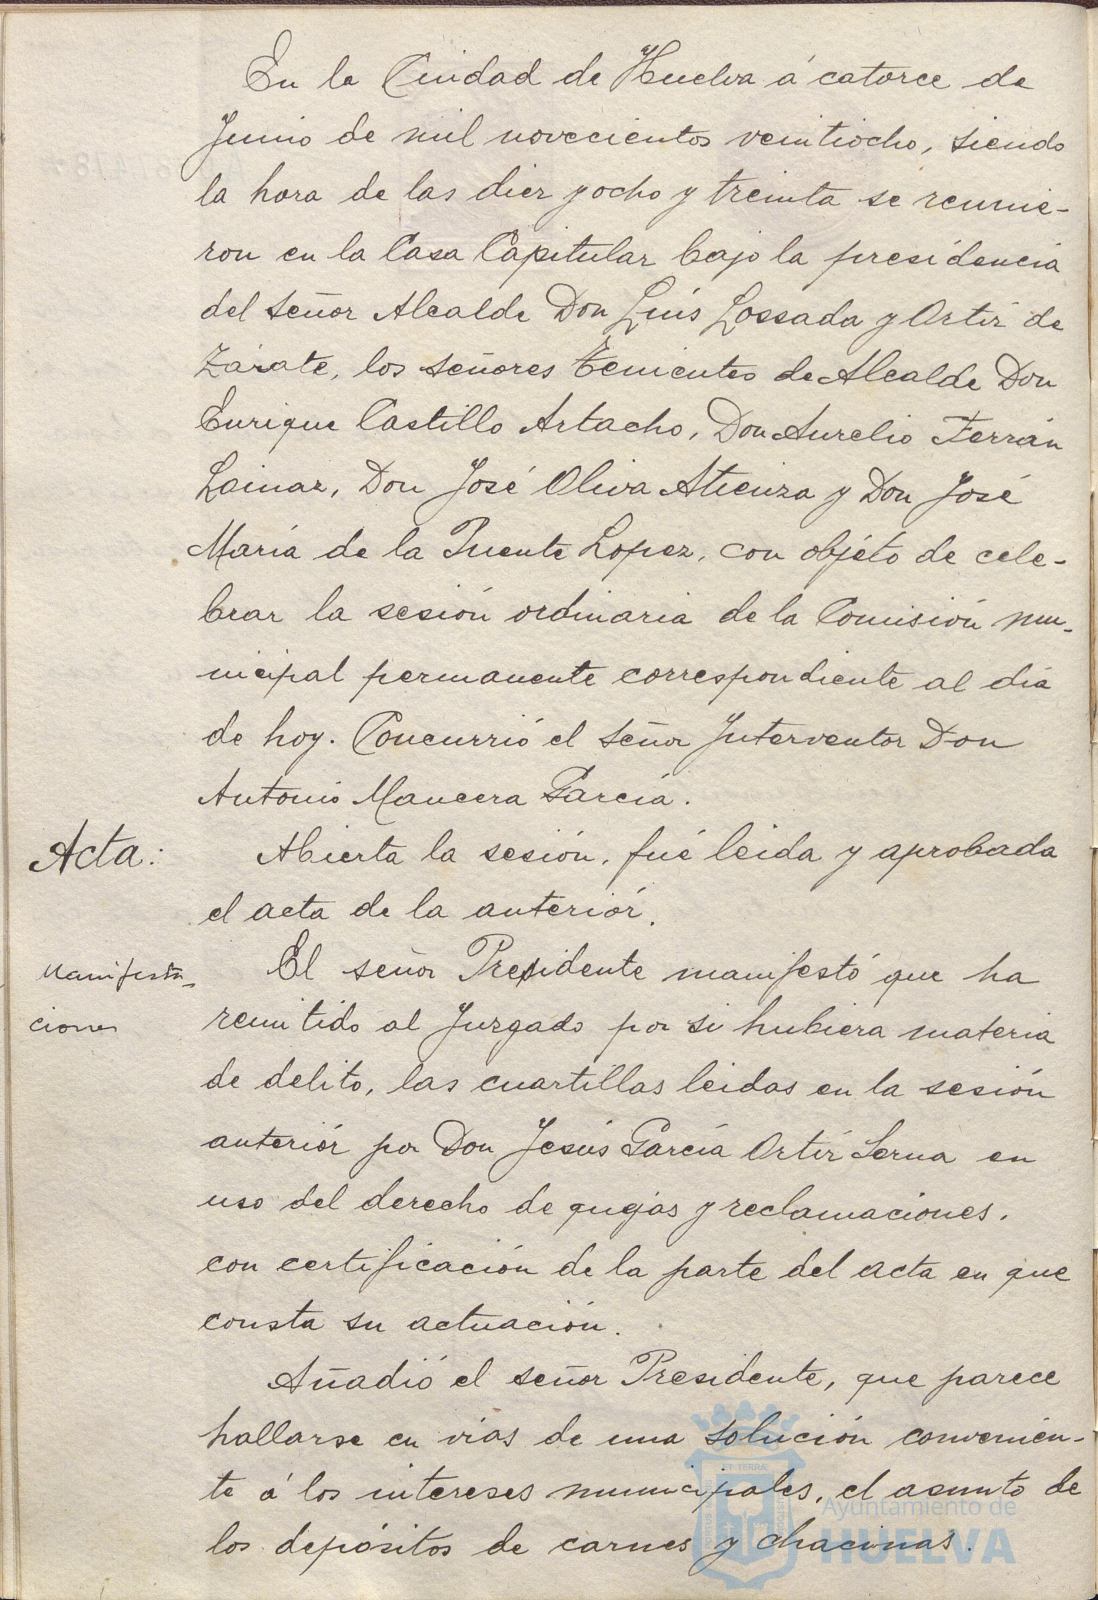 En la Ciudad de Huelva á catorce de
Junio de mil novecientos veintiocho, siendo
la hora de las diez y ocho y treinta se reunie-
ron en la Casa Capitular bajo la presidencia
del señor Alcalde Don Luís Lossada y Ortiz de
Zárate, los señores tenientes de Alcalde Don
Enrique Castillo Artacho, Don Aurelio Ferrán
Lainaz, Don José Oliva Atienza y Don José
María de la Puente Lopez, con objéto de cele-
brar la sesión ordinaria de la Comisión mu-
nicipal permanente correspondiente al día
de hoy. Concurrió el señor Interventor Don
Antonio Mancera García.
Acta:
Abierta la sesión, fué leida y aprobada
el acta de la anteriór.
Manifesta-
ciones
El señor Presidente manifestó que ha
remitido al Juzgado por si hubiera materia
de delito, las cuartillas leidas en la sesión
anteriór por Don Jesús García Ortiz Serna en
uso del derecho de quejas y reclamaciones,
con certificación de la parte del acta en que
consta su actuación.
Añadió el señor Presidente, que parece
hallarse en vías de una solución convenien-
te á los intereses municipales, el asunto de
los depósitos de carnes y chacinas.
Ayuntamiento de
HUELVA